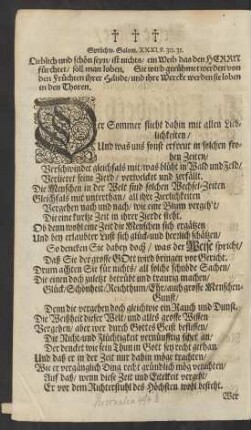 † † †
Sprichw. Salom. XXXI. v. 30. 31.
Lieblich und schön seyn / ist nichts / ein Weib das den HERRN
fürchtet / soll man loben, Sie wird gerühmet werden von
den Früchten ihrer Hände / und ihre Wercke werden sie loben
in den Thoren.
Der Sommer flieht dahin mit allen Lieb-
lichkeiten /
Und was uns sonst erfreut in solchen fro-
hen Zeiten /
Verschwindet gleichfals mit / was blüht in Wald und Feld /
Verlieret seine Zierd / verwelcket und zerfällt.
Die Menschen in der Welt sind solchen Wechsel-Zeiten
Gleichfals mit unterthan / all ihre Zierlichkeiten
Vergehen nach und nach / wie eine Blum vergeht /
Die eine kurtze Zeit in ihrer Zierde steht.
Ob denn wohl eine Zeit die Menschen sich ergötzen
Und bey erlaubter Lust sich glück und herrlich schätzen /
So dencken Sie dabey doch / was der Weise spricht /
Daß Sie der grosse GOtt wird bringen vor Gericht.
Drum achten Sie für nichts / all solche schnöde Sachen /
Die einen doch zuletzt betrübt und traurig machen /
Glück / Schönheit / Reichthum / Ehr / auch grosse Menschen-
Gunst /
Denn die vergehen doch gleichwie ein Rauch und Dunst.
Die Weißheit dieser Welt / und alles grosse Wissen
Vergehen / aber wer durch Gottes Geist beflissen /
Die Nicht- und Flüchtigkeit vernünfftig sihet an /
Der dencket wie sein Thun in Gott sey recht gethan
Und daß er in der Zeit nur dahin möge trachten /
Wie er vergänglich Ding recht gründlich mög verachten /
Auf daß / wenn diese Zeit und Eitelkeit vergeht /
Er vor dem Richterstuhl des Höchsten wohl besteht.
Wer